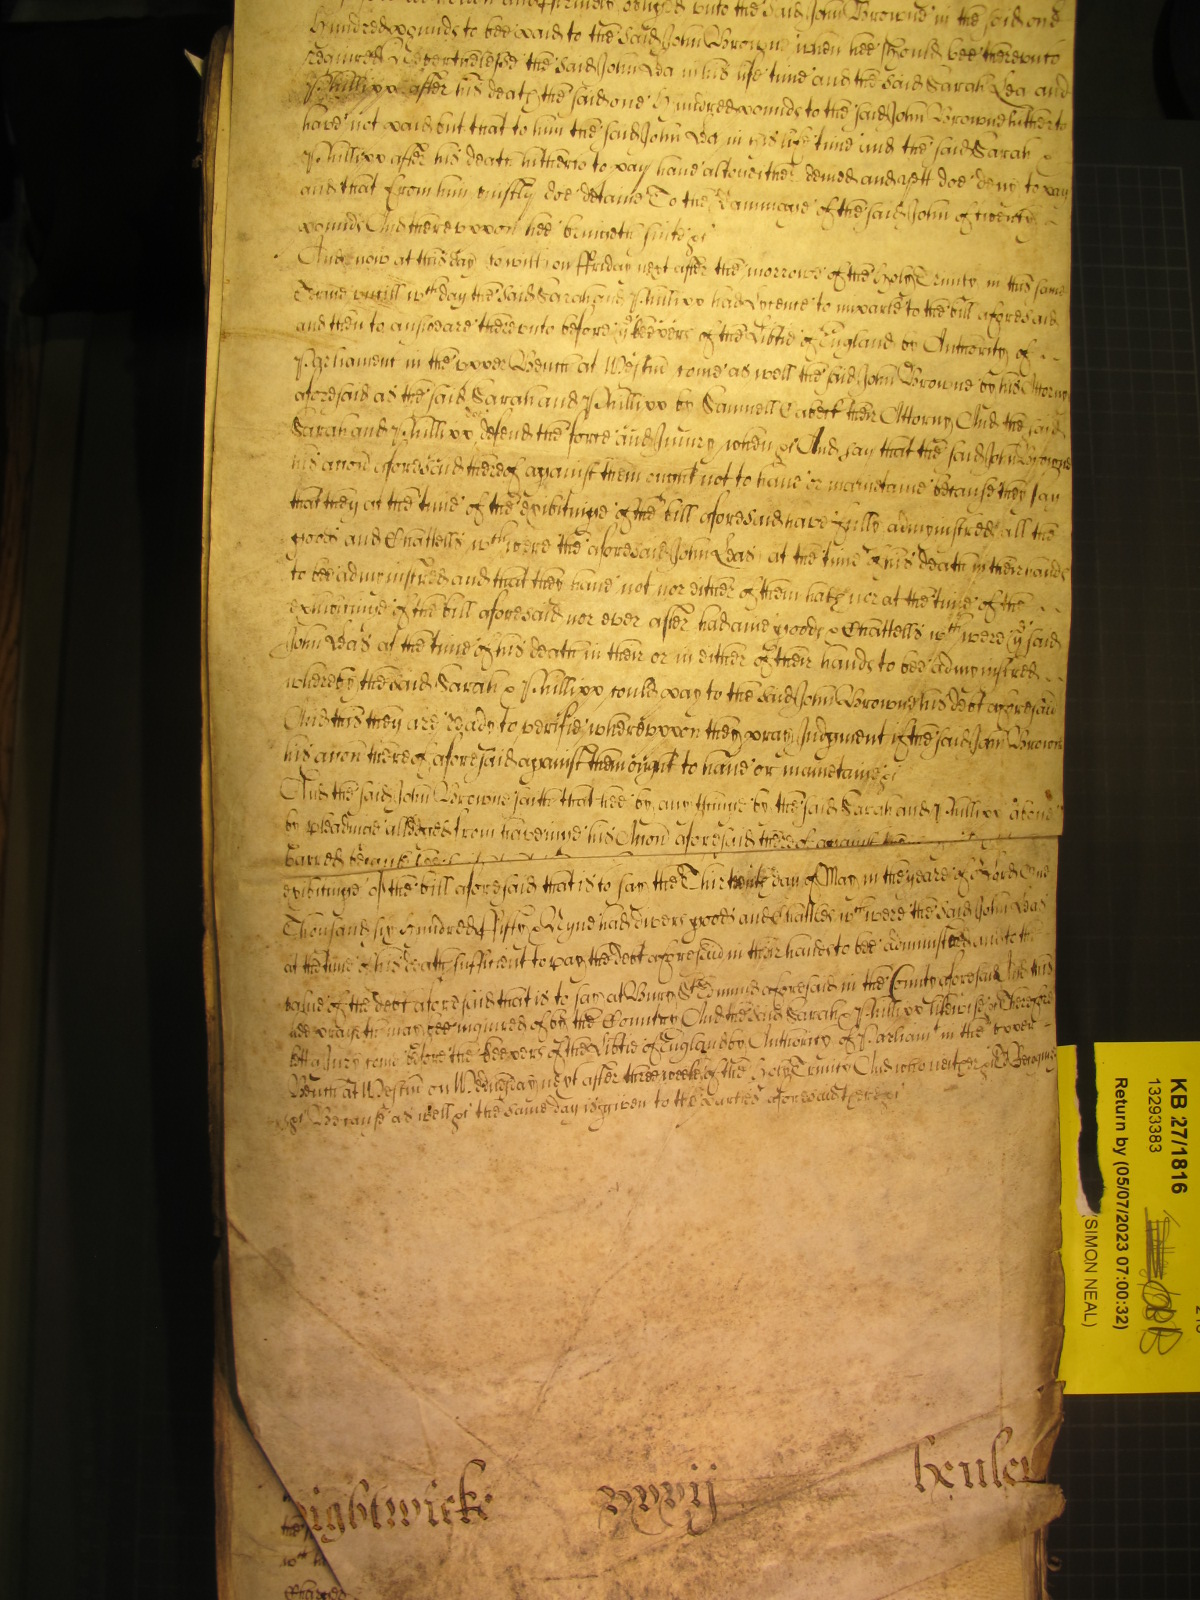 and firmely obliged unto the said John Browne in the said one
hundred pounds to bee paid to the said John Browne when hee should bee thereunto
required Neverthelesse the said John Lea in his life time and the said Sarah Lea and
Phillipp after his death the said one hundred pounds to the said John Browne hitherto
have not paid but that to him the said John Lea in his life time and the said Sarah &
Phillipp after his death hitherto to pay have altogeither denied and yett doe deny to pay
and that from him uniustly doe detaine To the Dammage of the said John of twenty
pounds And thereuppon hee bringeth suite &c
And now at this day to witt on Ffriday next after the morrowe of the holy Trinity in this same
Terme untill wch day the said Sarah and Phillipp had lycence to imparle to the bill aforesaid
and then to answeare thereunto before ye keepers of the Libtie of England by Authority of
Parliament in the upper Bench at Westm come as well the said John Browne by his Attorny
aforesaid as the said Sarah and Phillipp by Samuell their Attorny And the said
Sarah and Phillipp defend the force and Iniury when &c And say that the said John Browne
his accon aforesaid thereof against them ought not to have or maintaine because they say
that they at the time of the exibitinge of the bill aforesaid have fully admynistred all the
goods and Chattells wch were the aforesaid John Leas at the time of his death in their hands
to bee admynistred and that they have not nor either of them hath nor at the time of the
exhibitinge of the bill aforesaid nor ever after had anie goods & Chattells wch were ye said
John Leas at the time of his death in their or in either of their hands to bee admynistred
whereby the said Sarah & Phillipp could pay to the said John Browne his debt aforesaid
And this they are ready to verifie whereuppon they pray Judgment if the said John Browne
his accon thereof aforesaid against them ought to have or maintaine &c
And the said John Browne saith that hee by any thinge by the said Sarah and Phillipp above
by pleadinge alledged from haveinge his Accon aforesaid thereof against
barred because
exibitinge of the bill aforesaid that is to say the Thirtenth day of May in the yeare of or Lord One
Thousand six hundred fifty & Nyne had divers goods and Challes wch were the said John Leas
at the time of his death sufficient to pay the debt aforesaid in their hands to bee administred and to the
value of the debt aforesaid that is to say at Bury St Edmunds aforesaid in the County aforesaid And this
hee prayeth may bee inquired of by the Country And the said Sarah & Phillipp likewise &c Therefore
lett a Jury come before the keepers of the Libtie of England by Authority of Parliamt in the upper
Bench at Westm on Wednesday next after three weekes of the holy Trinity And who neither &c To Recognize
&c Because as well &c the same day is given to the parties aforesaid there &c
KB 27/1816
13293383
Return by (05/07/2023 07:00:32)
(SIMON NEAL)
Hightwicke xxxvij henley